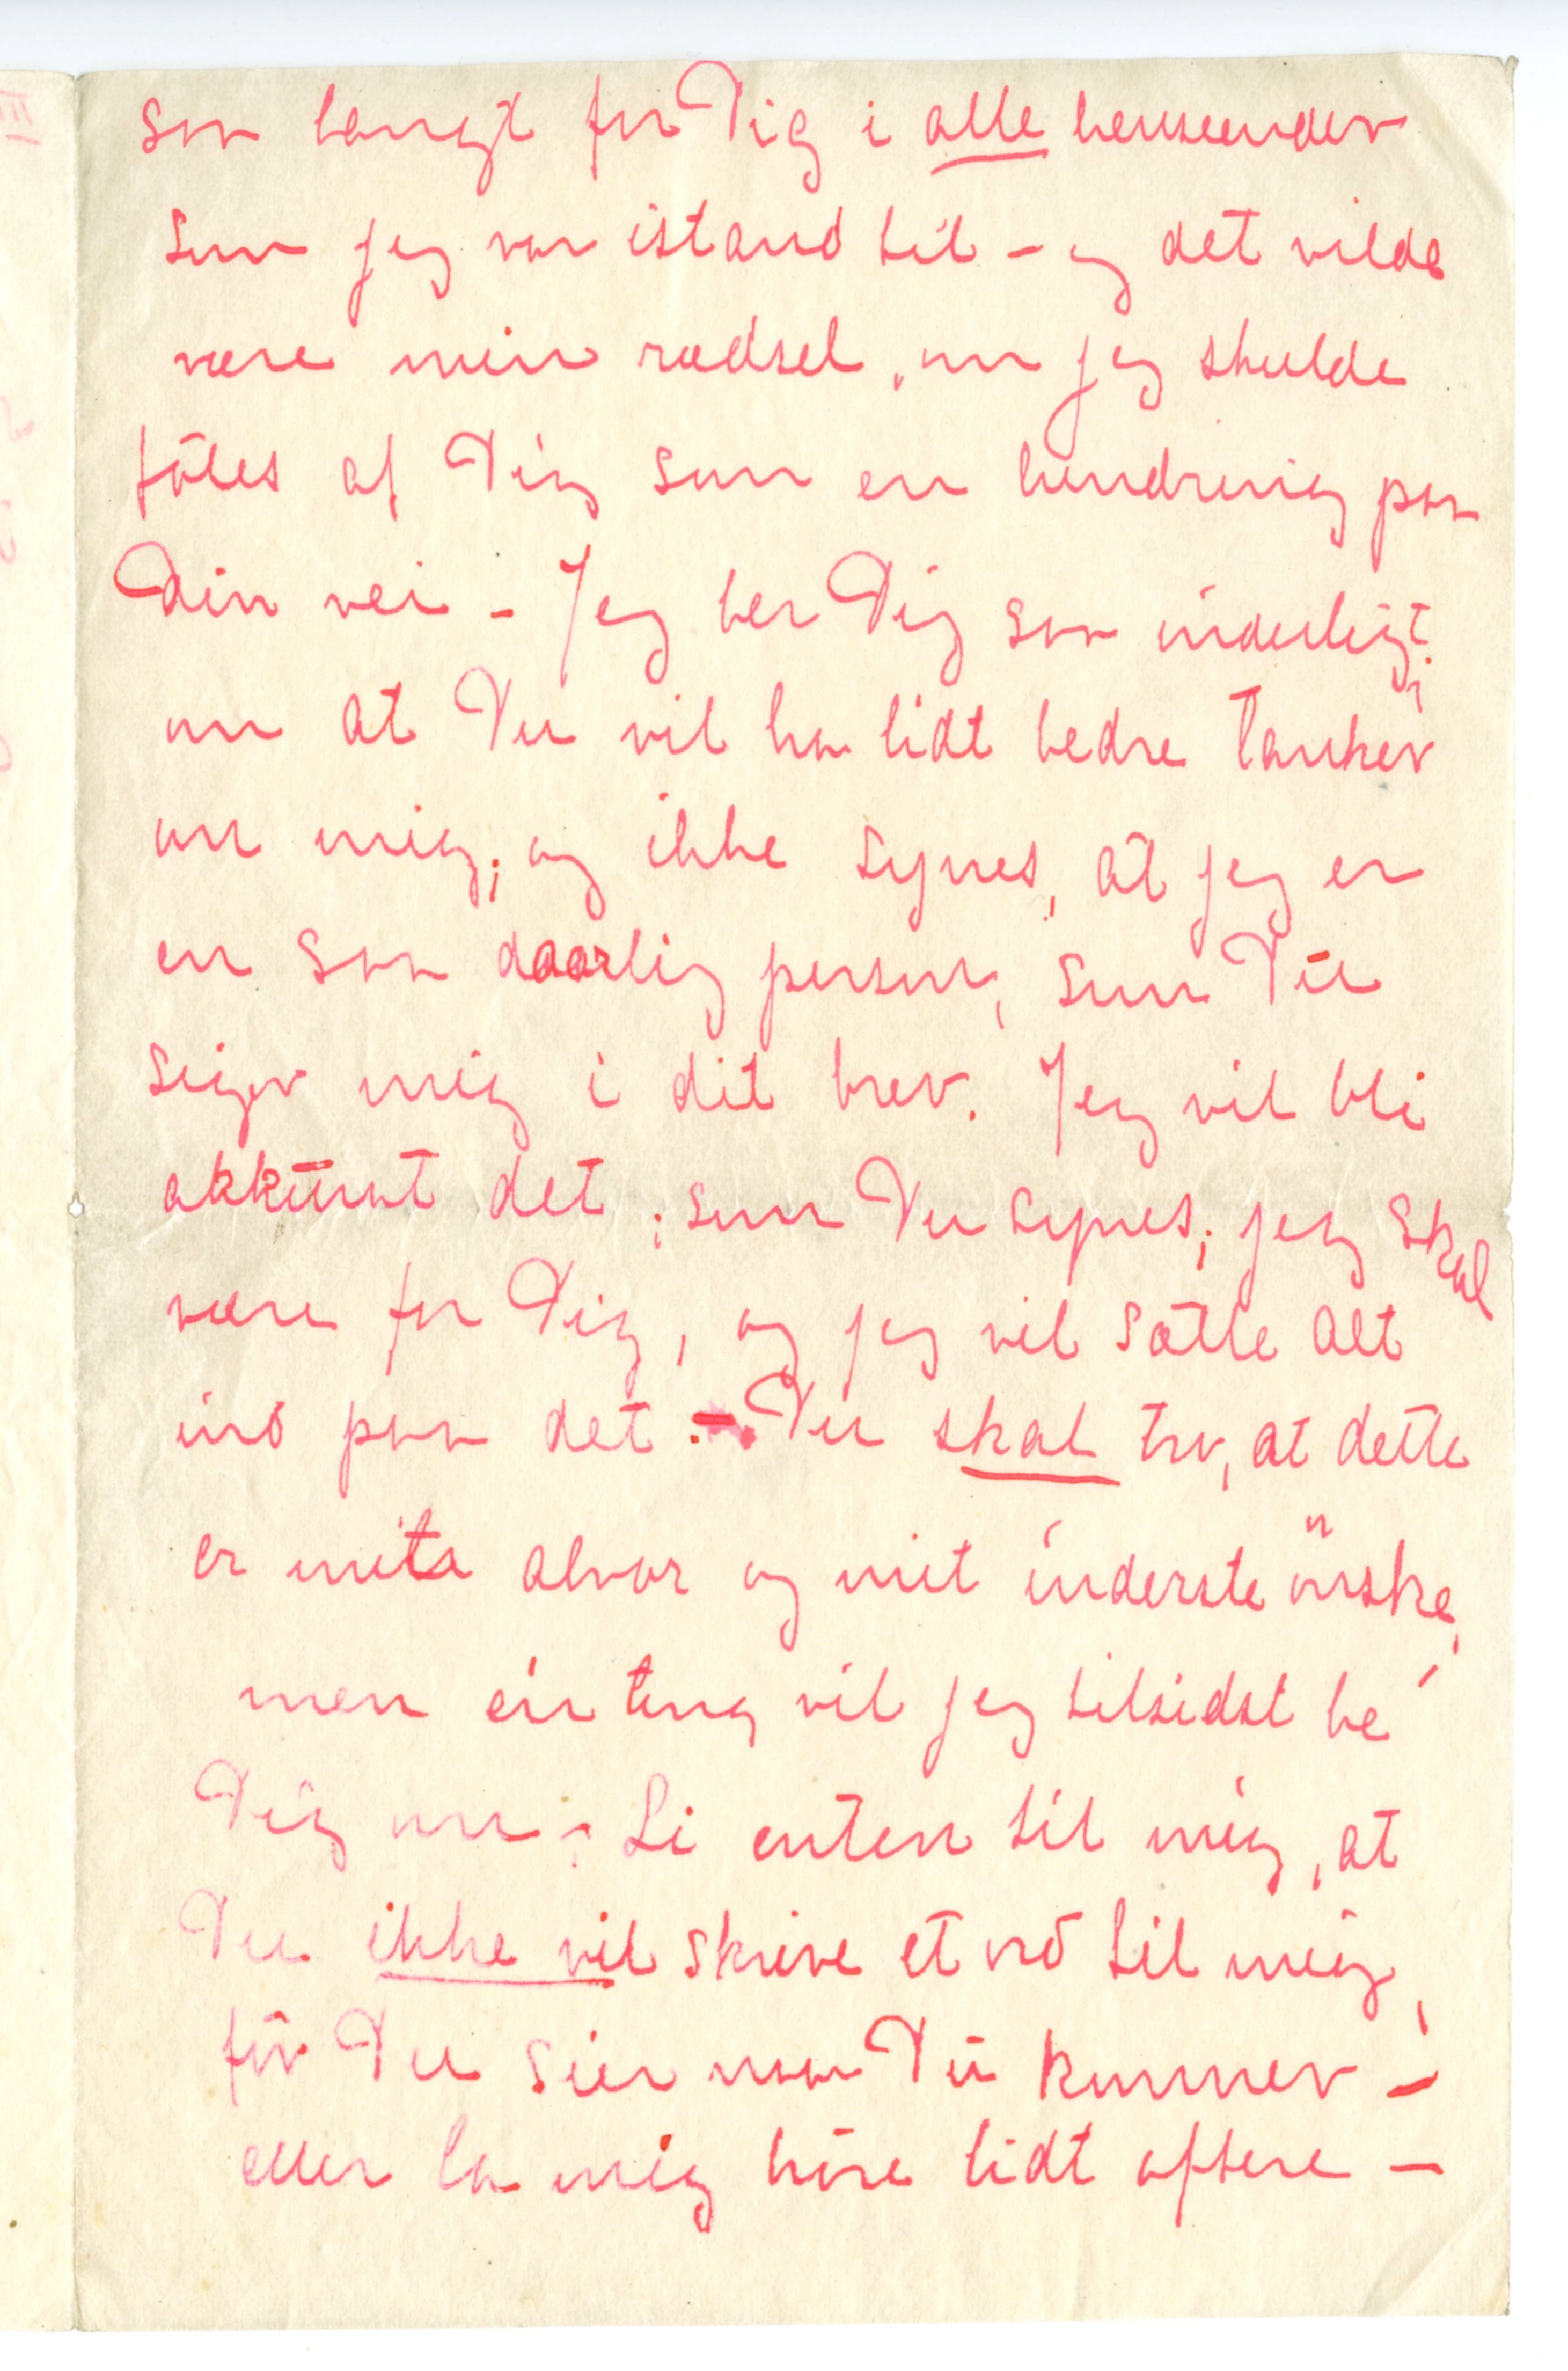 saa langt for Dig i alle henseender
som jeg var istand til – og det vilde
være min rædsel, om jeg skulde
föles af Dig som en hindring paa
Din vei – Jeg ber Dig saa inderligt
om at Du vil ha lidt bedre tanker
om mig; og ikke synes, at jeg er
en saa daarlig person, som Du
siger mig i dit brev. Jeg vil bli
akkurat det, som Du synes, jeg skal
være for Dig, og jeg vil sætte alt
ind paa det. – Du skal tro, at dette
er mit alvor og mit inderste önske,
men én ting vil jeg tilsidst be
Dig om – Si enten til mig, at
Du ikke vil skrive et ord til mig,
för Du sier naar Du kommer –
eller la mig höre lidt oftere –
III